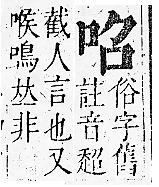 𠰉
俗字舊
註音超
截人言也又
喉鳴𠀤非